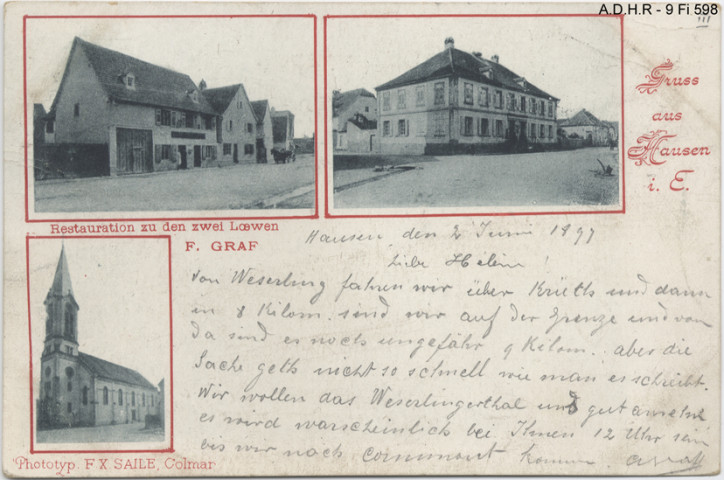 A.D.H.R - 9 Fi 598
Gruss
aus
Hausen
i. E.
Restauration zu den zwei Lœwen
F. GRAF
Hausen, den 2 Juni 1897
Liebe Helen !
Von Weserling fahren wir über Krüth und dann
in 8 Kilom. sind wir auf der Grenze und von
da sind es noch ungefähr 9 Kilom. aber die
Sache geth nicht so schnell wie man es schreibt.
Wir wollen das Weserlingerthal uns gut
es wird warscheinlich bei Ihnen 12 Uhr sein
bis wir nach kommen.
Phototyp. F X SAILE, Colmar